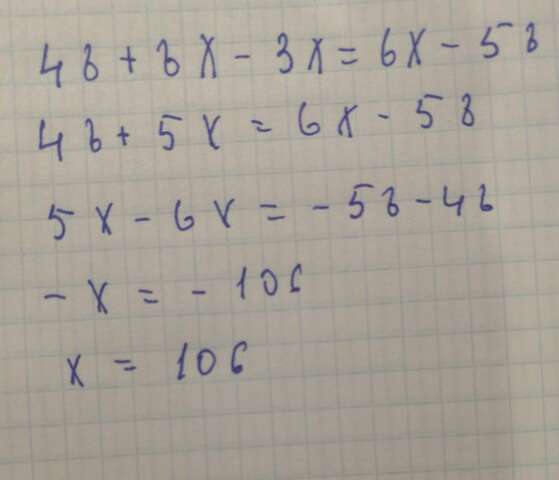 48 + 8x - 3x = 6x - 58
48 + 5x = 6x - 58
5x - 6x = - 58 - 48
- x = - 106
x = 106